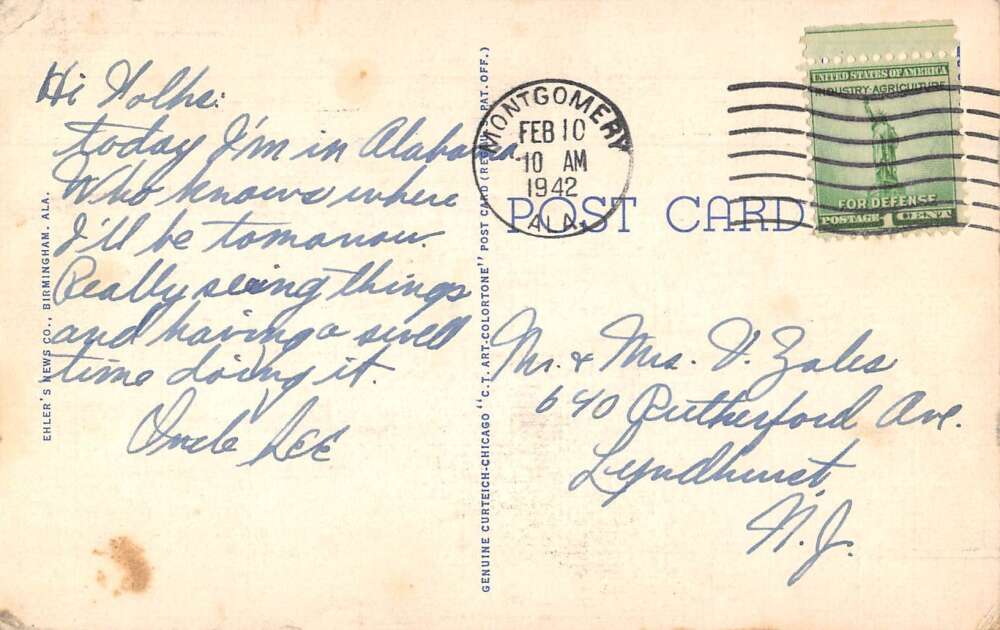 Hi Folks:
today I'm in Alabama.
Who knows where
I'll be tomorrow.
Really seeing things
and having a swell
time doing it.
Uncle LEE
EHLER'S NEWS CO., BIRMINGHAM, ALA.
GENUINE CURTEICH-CHICAGO "C.T. ART-COLORTONE" POST CARD (REG. PAT. OFF.)
MONTGOMERY
FEB 10
10 AM
1942
ALA.
POST CARD
UNITED STATES OF AMERICA
INDUSTRY·AGRICULTURE
FOR DEFENSE
POSTAGE 1 CENT
Mr. & Mrs. V. Zales
640 Rutherford Ave.
Lyndhurst,
N.J.